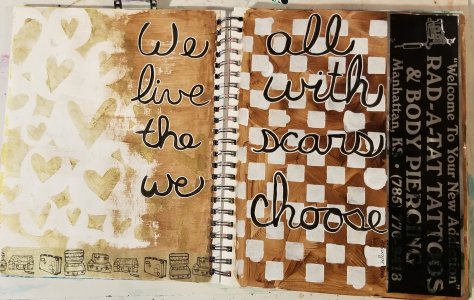 We all
live with
the scars
we choose
"Welcome To Your New Addiction"
RAD-A-TAT TATTOOS
& BODY PIERCING
Manhattan, KS